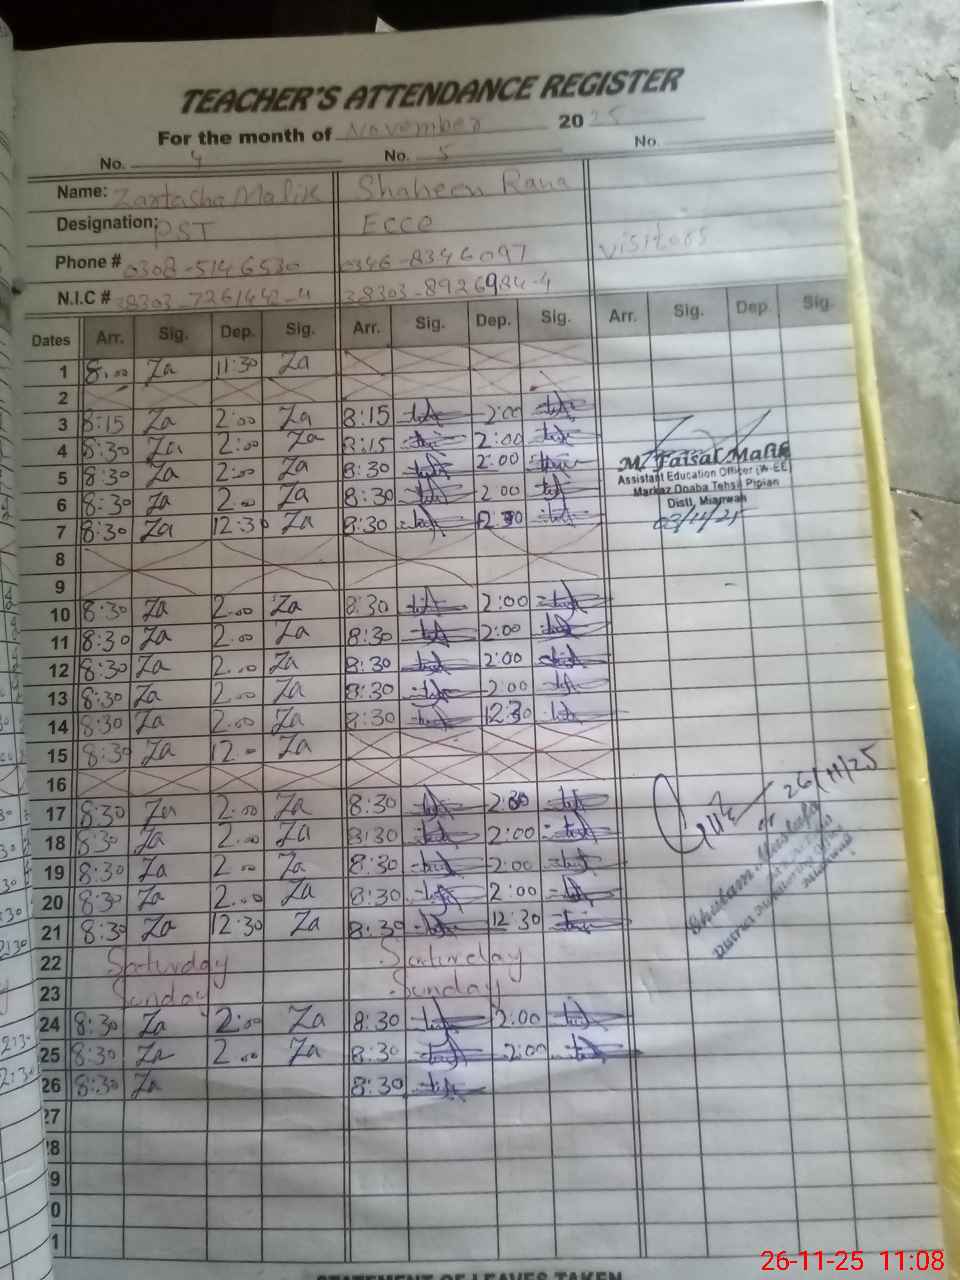 TEACHER'S ATTENDANCE REGISTER
For the month of November 2025
No. 4 No. 5 No.
Name: Zartasha Malik Shaheen Rana
Designation: PST ECCE
visitors
Phone # 0308-5146530 0346-8346097
N.I.C # 38303-7261442-4 38303-8926984-4
Dates Arr. Sig. Dep. Sig. Arr. Sig. Dep. Sig. Arr. Sig. Dep. Sig.
1 8:00 Za 11:30 Za
2
3 8:15 Za 2:00 Za 8:15 2:00
4 8:30 Za 2:00 Za 8:15 2:00
5 8:30 Za 2:00 Za 8:30 2:00
6 8:30 Za 2:00 Za 8:30 2:00
7 8:30 Za 12:30 Za 8:30 12:30
M. Faisal Malik
Assistant Education Officer (W-EE)
Markaz Doaba Tehsil Piplan
Distt. Mianwali
03/11/25
8
9
10 8:30 Za 2:00 Za 8:30 2:00
11 8:30 Za 2:00 Za 8:30 2:00
12 8:30 Za 2:00 Za 8:30 2:00
13 8:30 Za 2:00 Za 8:30 2:00
14 8:30 Za 2:00 Za 8:30 12:30
15 8:30 Za 12:00 Za
16
17 8:30 Za 2:00 Za 8:30 2:00
18 8:30 Za 2:00 Za 8:30 2:00
19 8:30 Za 2:00 Za 8:30 2:00
20 8:30 Za 2:00 Za 8:30 2:00
21 8:30 Za 12:30 Za 8:30 12:30
26/11/25
22 Saturday Saturday
23 Sunday Sunday
24 8:30 Za 2:00 Za 8:30 2:00
25 8:30 Za 2:00 Za 8:30 2:00
26 8:30 Za 8:30
27
28
29
30
31
STATEMENT OF LEAVES TAKEN
26-11-25 11:08